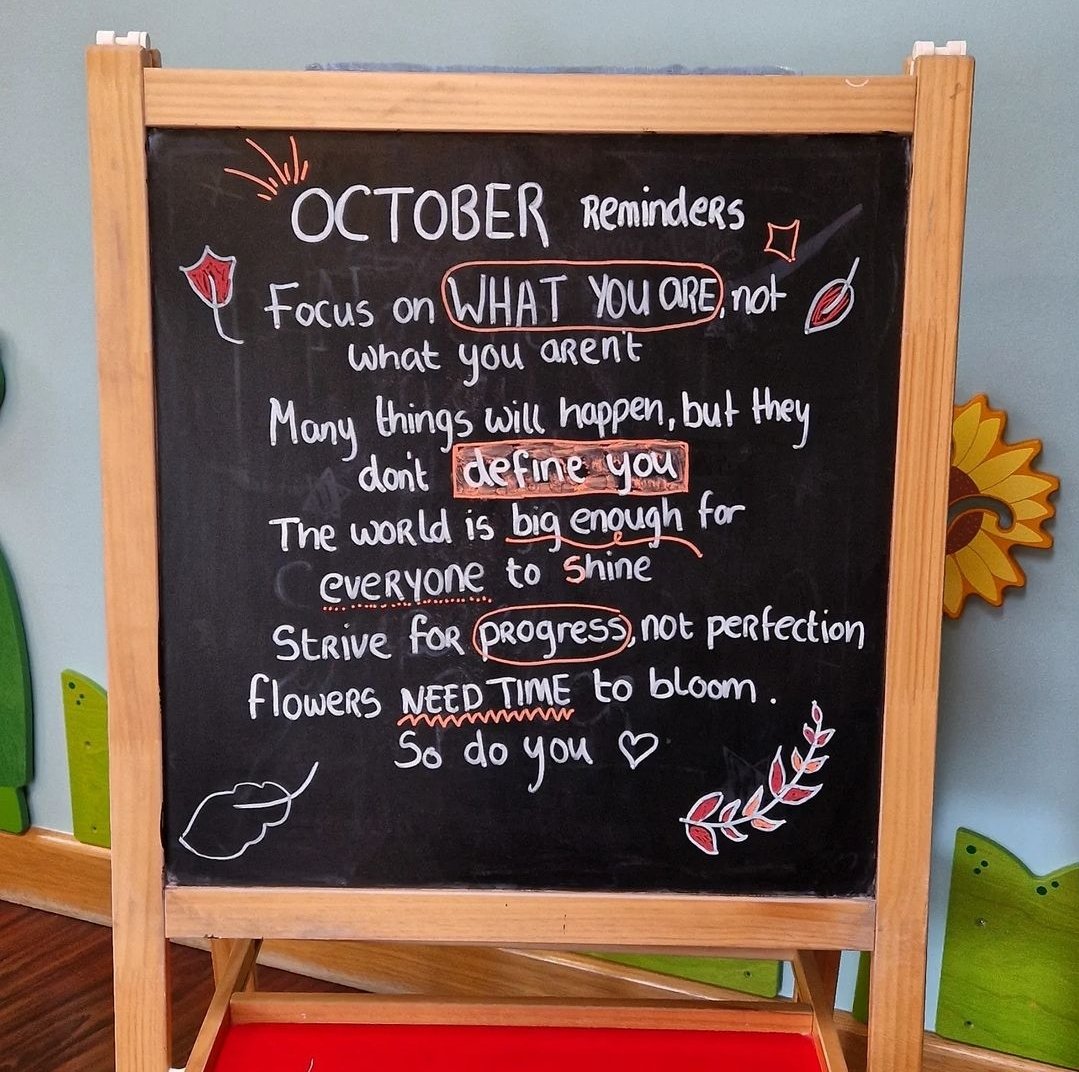 OCTOBER Reminders
Focus on WHAT YOU ARE, not
what you aren't
Many things will happen, but they
don't define you
The world is big enough for
everyone to shine
Strive for progress, not perfection
flowers NEED TIME to bloom.
So do you ♡